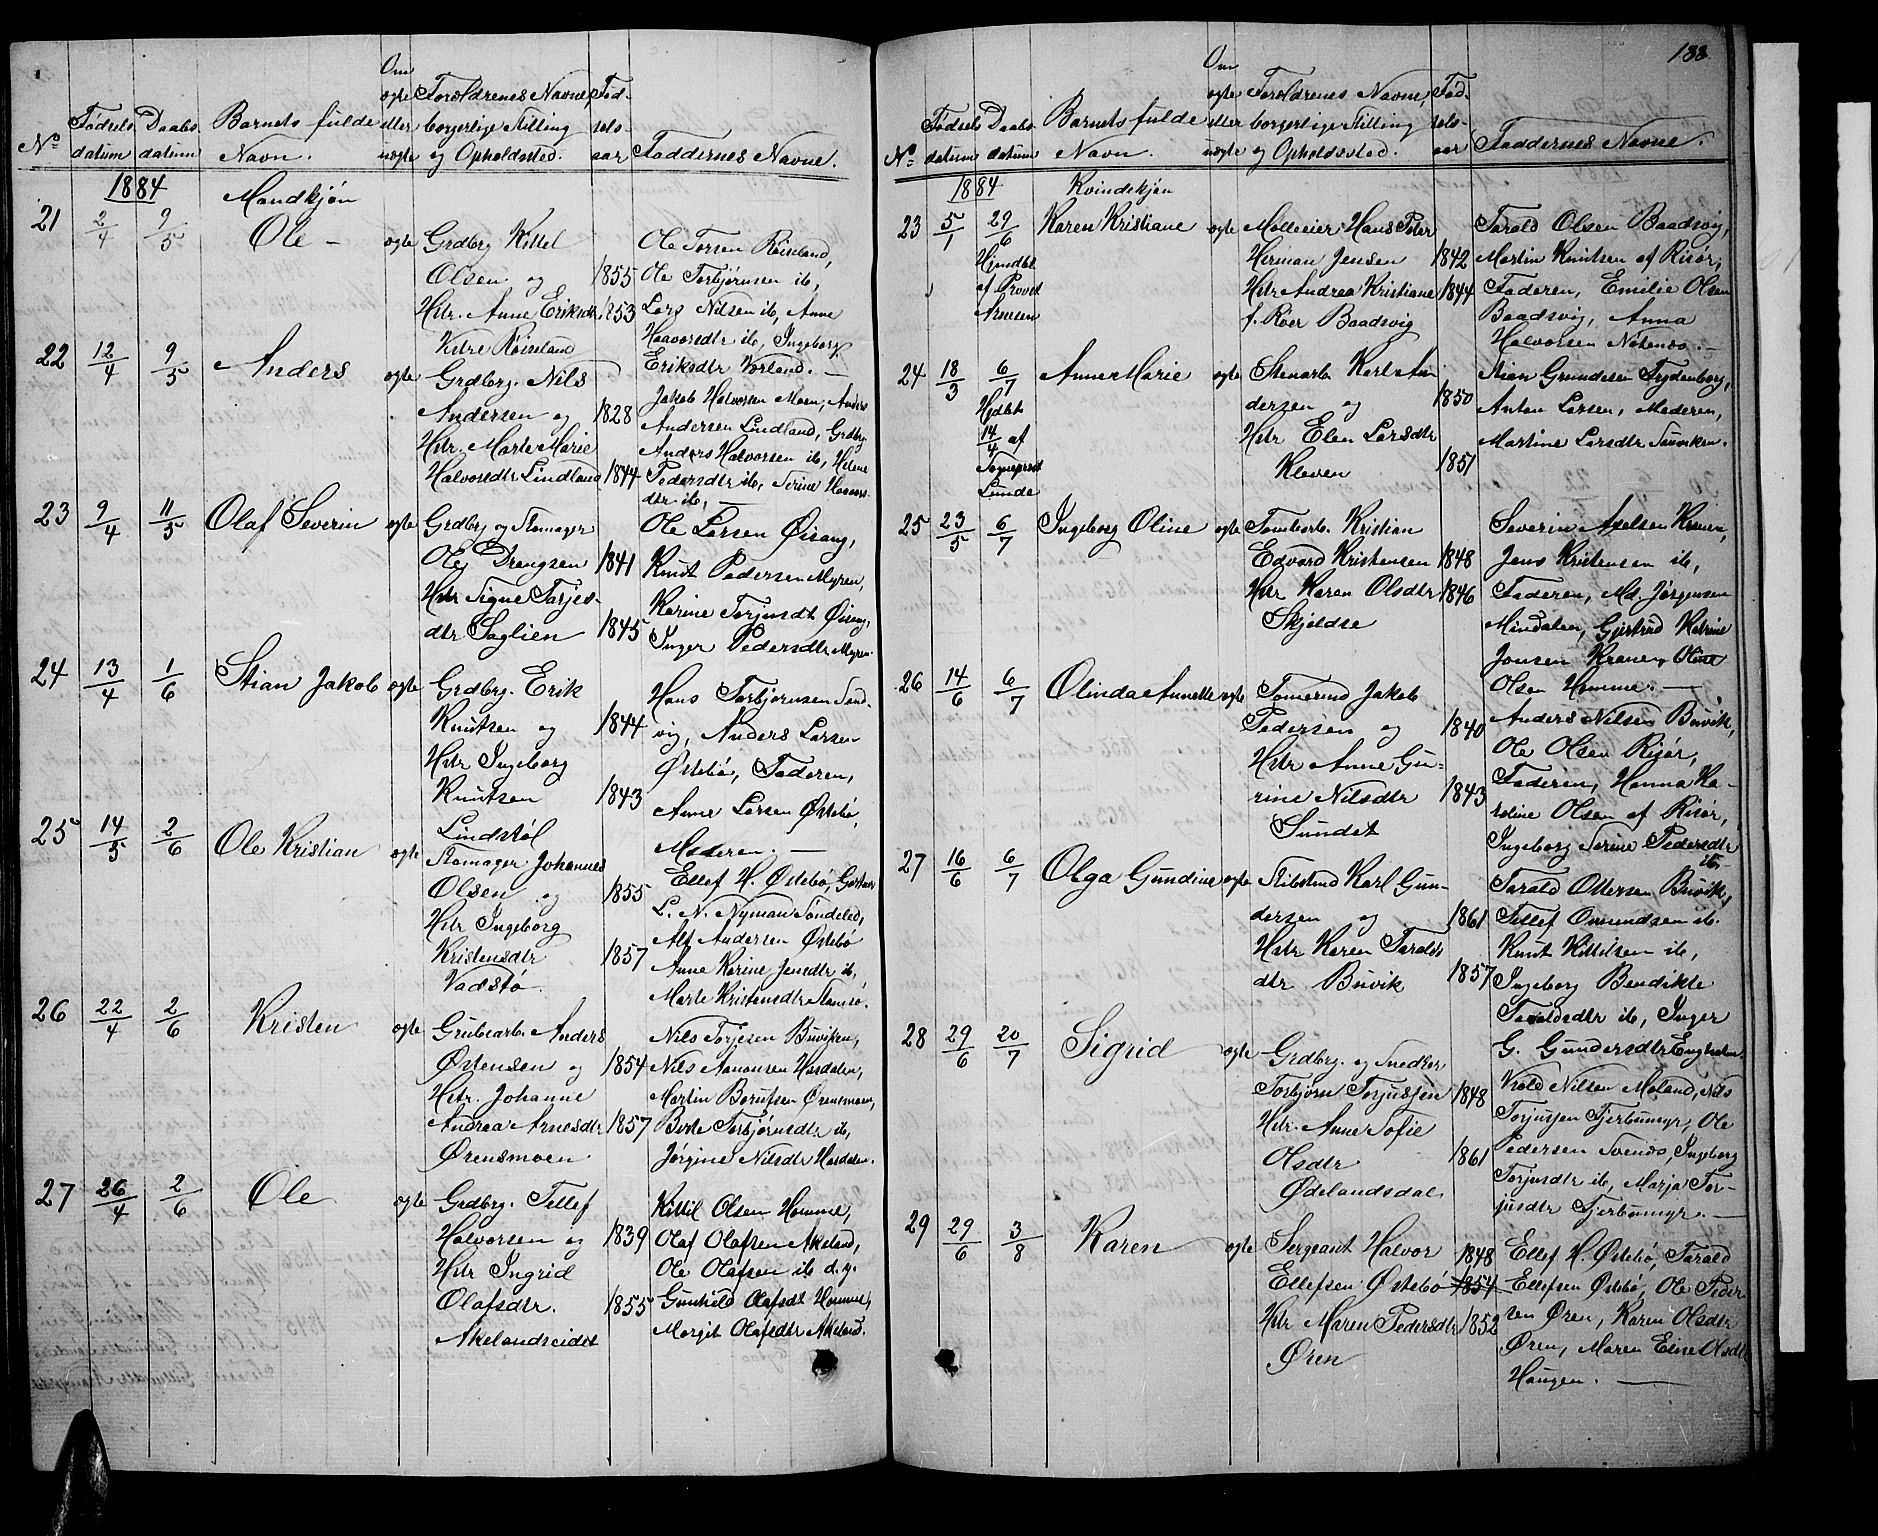 Om
ægte Forældrenes Navne, Fød-
Fødsels Daabs Barnets fulde eller borgerlige Stilling sels-
No datum datum Navn. uægte og Opholdssted. aar Faddernes Navne.
1884 Mandkjøn
21 2/4 9/5 Ole - ægte Grdbrg Kittel
Olsen og 1855
Hstr. Anne Eriksdtr 1853
Røiseland
Ole Torsen Røiseland,
Ole Torbjørnsen ib,
Lars Nilsen ib, Anne
Haavorsdtr ib, Ingeborg
Eriksdtr Vorland. —
22 12/4 9/5 Anders ægte Grdbrg. Nils
Andersen og 1828
Hstr. Marte Marie
Halvorsdtr Lindland 1844
Jakob Halvorsen Moen, Anders
Andersen Lindland, Grdbrg
Anders Halvorsen ib, Helene
Pedersdtr ib, Serine Haavors-
dtr ib, —
23 9/4 11/5 Olaf Severin ægte Grdbrg og Stamager
Ole Drengsen 1841
Hstr Signe Tarjes-
dtr Saglien 1845
Ole Larsen Øisang,
Knut Pedersen Myren,
Karine Torjusdt Øisang,
Inger Pedersdtr Myren.
24 13/4 1/6 Stian Jakob ægte Grdbrg. Erik
Knutsen og 1844
Hstr Ingeborg
Knutsen 1843
Lindstøl
Hans Torbjørnsen Sand-
vig, Anders Larsen
Østebø, Faderen,
Anne Larsen Østebø,
Moderen. —
25 14/5 2/6 Ole Kristian ægte Stamager Johannes
Olsen og 1855
Hstr Ingeborg
Kristensdtr 1857
Vadstø
Ellef H. Østebø,
L. N. Nyman Søndeled,
Alf Andersen Østebø
Anne Karine Jensdtr ib,
Marte Kristensdtr Stamsø.
26 22/4 2/6 Kristen ægte Grubearb. Anders
Østensen og 1854
Hstr. Johanne
Andrea Arnesdtr 1857
Ørensmoen
Nils Torjesen Buviken,
Nils Aanonsen Hasdalen,
Martin Berntsen Ørensmoen,
Berte Torbjørnsdtr ib,
Jørgine Nilsdtr Hasdalen.
27 26/4 2/6 Ole ægte Grdbrg. Tellef
Halvorsen og 1839
Hstr Ingrid
Olafsdtr. 1855
Akelandseidet
Kittil Olsen Homme,
Olaf Olafsen Akeland,
Ole Olafsen ib d. y.
Gunhild Olafsdt Homme,
Margit Olafsdtr Akeland.
188
Om
ægte Forældrenes Navne, Fød-
Fødsels Daabs Barnets fulde eller borgerlige Stilling sels-
No datum datum Navn. uægte og Opholdssted. aar Faddernes Navne.
1884 Kvindekjøn
23 5/1 29/6 Karen Kristiane ægte Mølleeier Hans Peter
Hjemdbt
af Provst
Arnesen
Herman Jensen 1842
Hstr Andrea Kristiane 1844
f. Røer Baadsvig
Tarald Olsen Baadsvig,
Martin Knutsen af Risør,
Faderen, Emilie Olsen
Baadsvig, Anna
Halvorsen Nitenso. —
24 18/3 6/7 Anne Marie ægte Stenarb. Karl An-
Hjdbt
14/4 af
Sognepræst
Lunde
dersen og 1850
Hstr Elen Larsdtr
Kleven 1851
Stian Gundesen Frydenborg,
Anton Larsen, Moderen,
Martine Larsdtr Sauviken.
25 23/5 6/7 Ingeborg Oline ægte Tomtearb. Kristian
Edvard Kristensen 1848
Hstr Karen Olsdtr 1846
Skjeldsø
Severin Axelsen Kranen,
Jens Kristensen ib,
Faderen, Md. Jørgensen
Mindalen, Gjertrud Katrine
Jansen Kranen, Oline
Olsen Homme. —
26 14/6 6/7 Olinda Annette ægte Tømmermd Jakob
Pedersen og 1840
Hstr Anne Gu-
rine Nilsdtr 1843
Sundet
Anders Nilsen Buvik,
Ole Olsen Risør,
Faderen, Hanna Ka-
roline Olsen af Risør,
Ingeborg Serine Pedersdtr
ib,
27 16/6 6/7 Olga Gundine ægte Skibstmd Karl Gun-
dersen og 1861
Hstr Karen Taralds-
dtr Buvik 1857
Tarald Ottersen Buvik,
Tellef Omundsen ib.
Knut Kittelsen ib,
Ingeborg Bendikte
Taraldsdtr ib, Inger
G. Gundersdtr Engholm.
28 29/6 20/7 Sigrid ægte Grdbrg. og Snedker
Torbjørn Torjussen 1848
Hstr. Anne Sofie
Olsdtr 1861
Ødelandsdal
Krold Nilsen Moland, Nils
Torjussen Fjerbumyr, Ole
Pedersen Svends, Ingeborg
Torjusdtr ib, Marja Tor-
jusdtr Fjerbumyr. —
29 29/6 3/8 Karen ægte Sergeant Halvor 1848
Ellefsen Østebø 1854
Hstr Maren Pedersdtr 1852
Øren
Ellef H. Østebø, Tarald
Ellefsen Østebø, Ole Peder-
sen Øren, Karen Olsdtr
Øren, Maren Eline Olsdtr
Haugen. —